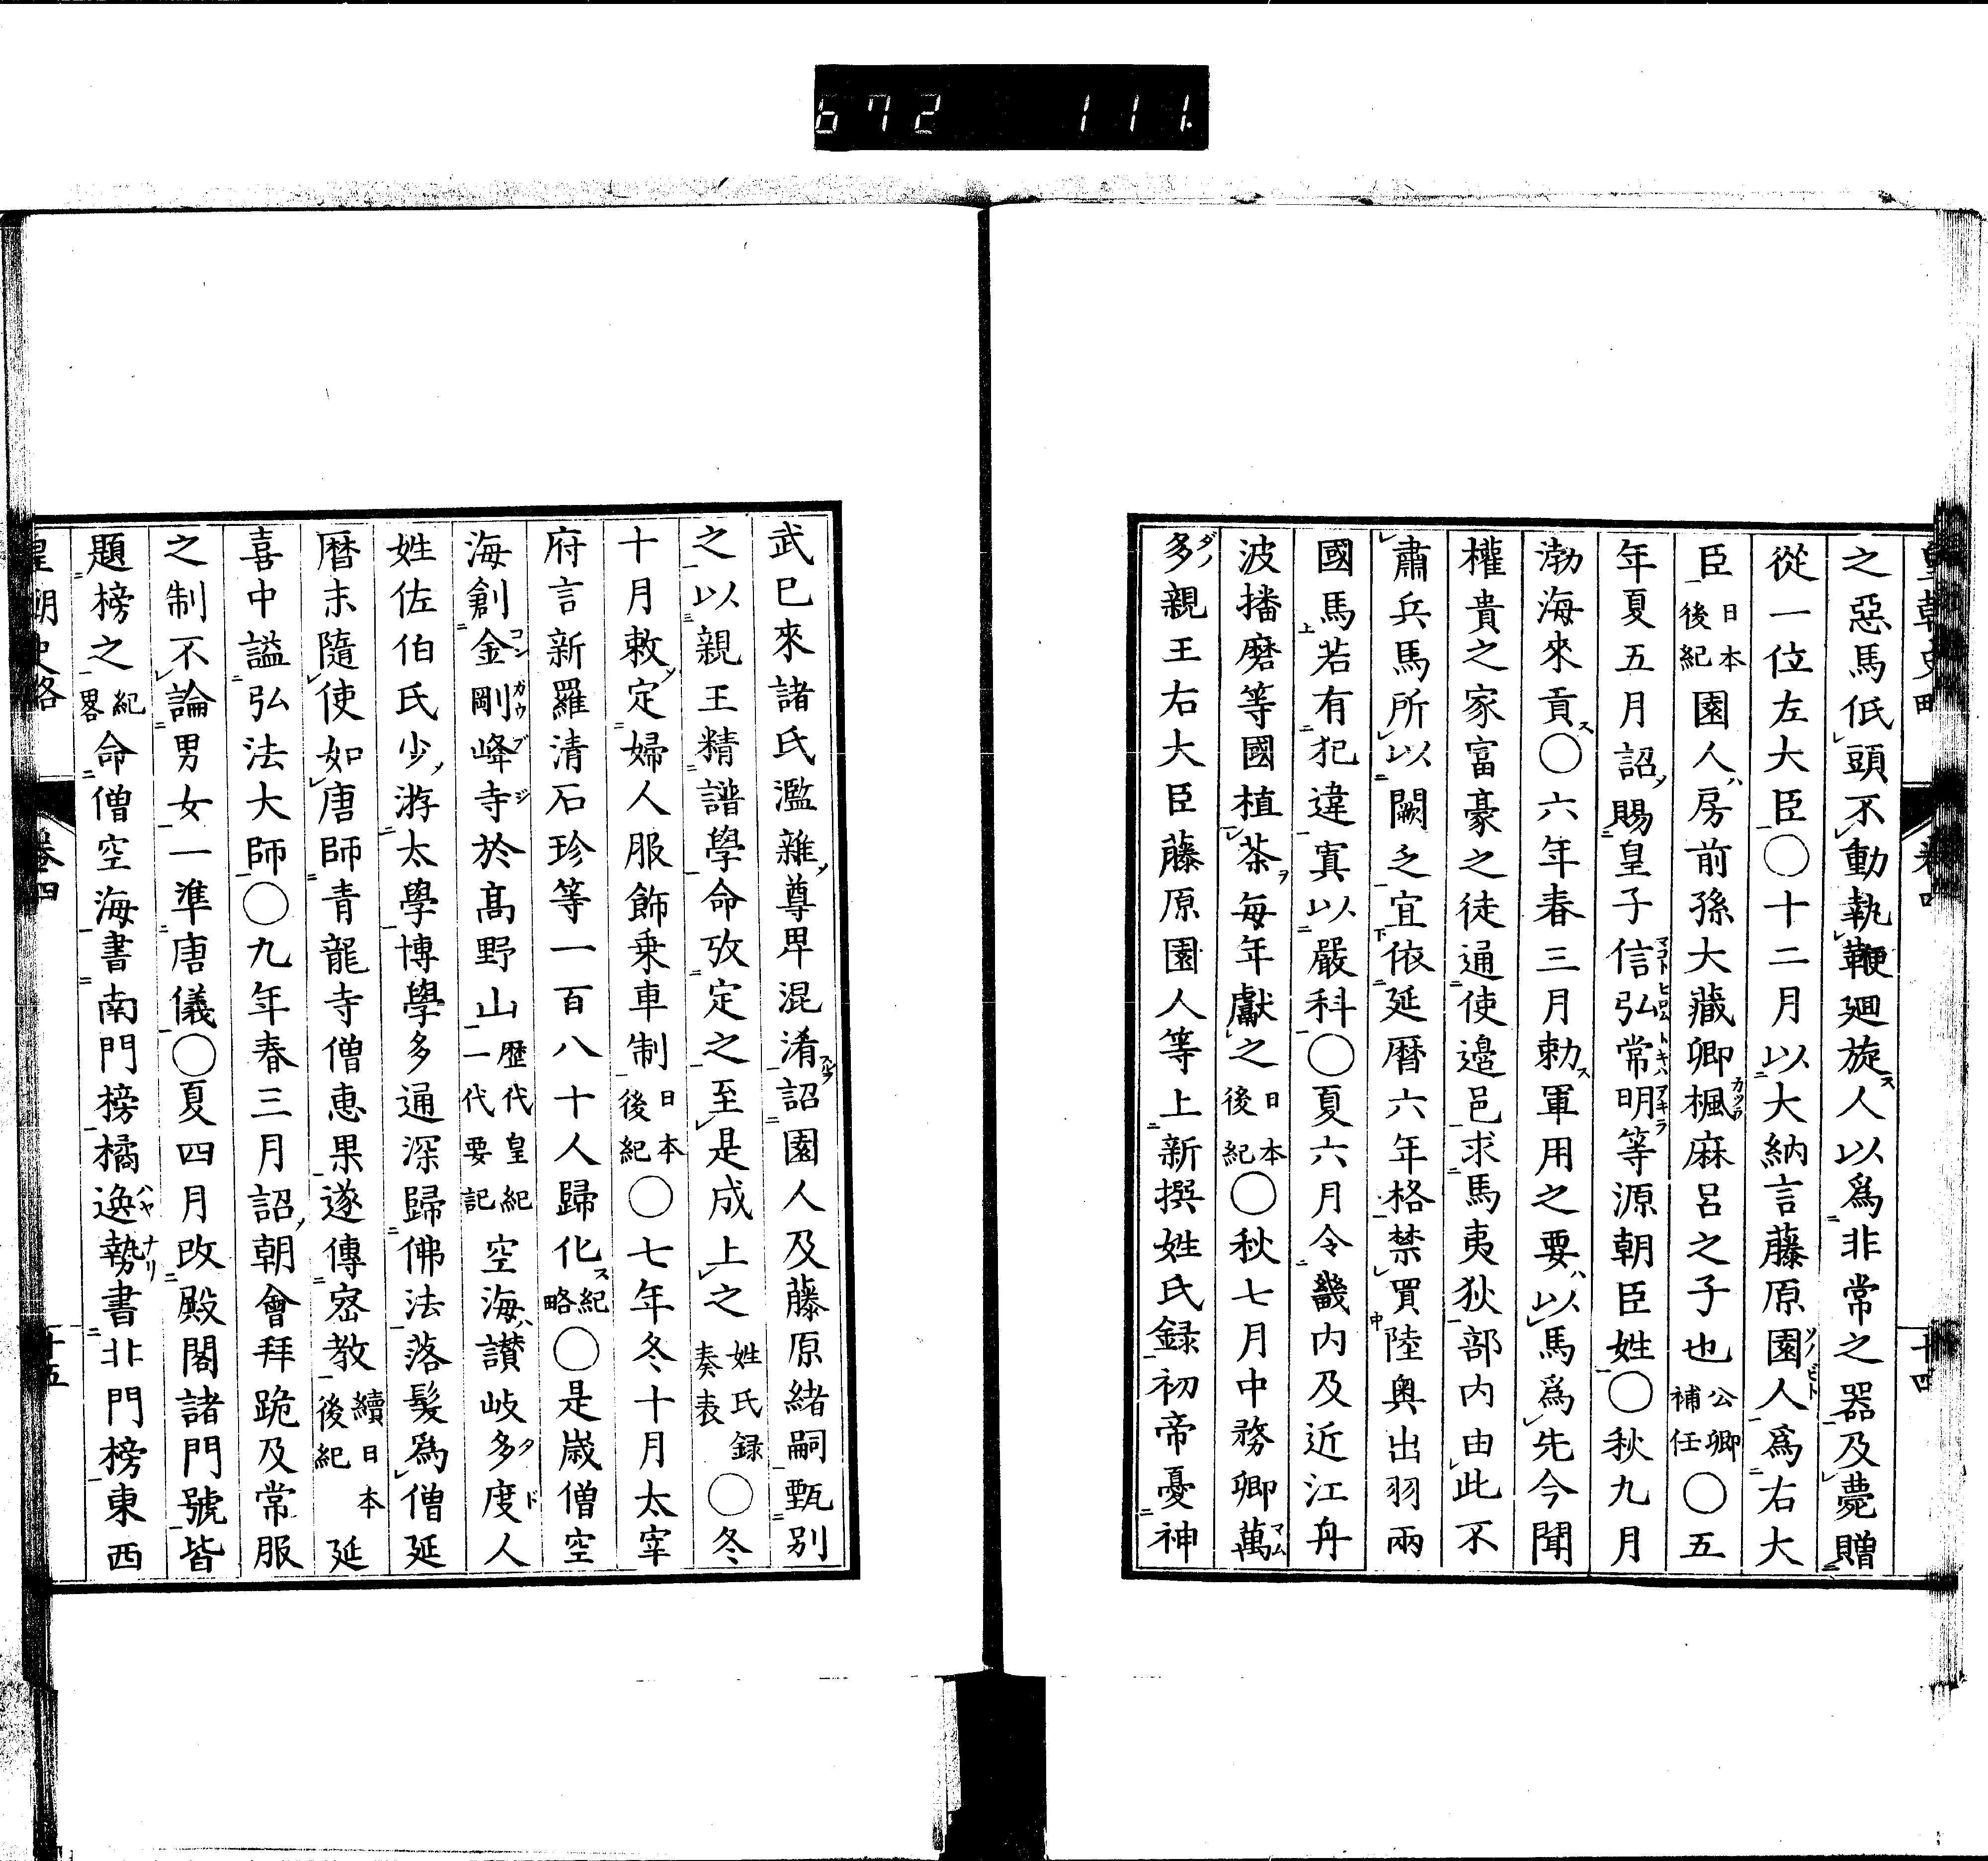 672 111
皇朝史略 卷四 十四
之惡馬低頭不動執鞭廻旋人以爲非常之器及薨贈
從一位左大臣○十二月以大納言藤原園人爲右大
臣日本後紀園人房前孫大藏卿楓麻呂之子也公卿補任○五
年夏五月詔賜皇子信弘常明等源朝臣姓○秋九月
渤海來貢○六年春三月勅軍用之要以馬爲先今聞
權貴之家富豪之徒通使邊邑求馬夷狄部内由此不
肅兵馬所以闕乏宜依延曆六年格禁買陸奧出羽兩
國馬若有犯違寘以嚴科○夏六月令畿内及近江丹
波播磨等國植茶每年獻之日本後紀○秋七月中務卿萬
多親王右大臣藤原園人等上新撰姓氏録初帝憂神
武已來諸氏濫雜尊卑混淆詔園人及藤原緒嗣甄別
之以親王精譜學命攷定之至是成上之姓氏録奏表○冬
十月敕定婦人服飾乗車制日本後紀○七年冬十月太宰
府言新羅清石珍等一百八十人歸化紀略○是歲僧空
海創金剛峰寺於髙野山歷代皇紀一代要記空海讃岐多度人
姓佐伯氏少游太學博學多通深歸佛法落髮爲僧延
曆末隨使如唐師青龍寺僧惠果遂傳密教續日本後紀延
喜中謚弘法大師○九年春三月詔朝會拜跪及常服
之制不論男女一準唐儀○夏四月改殿閣諸門號皆
題榜之紀畧命僧空海書南門榜橘逸勢書非門榜東西
皇朝史略 卷四 十五